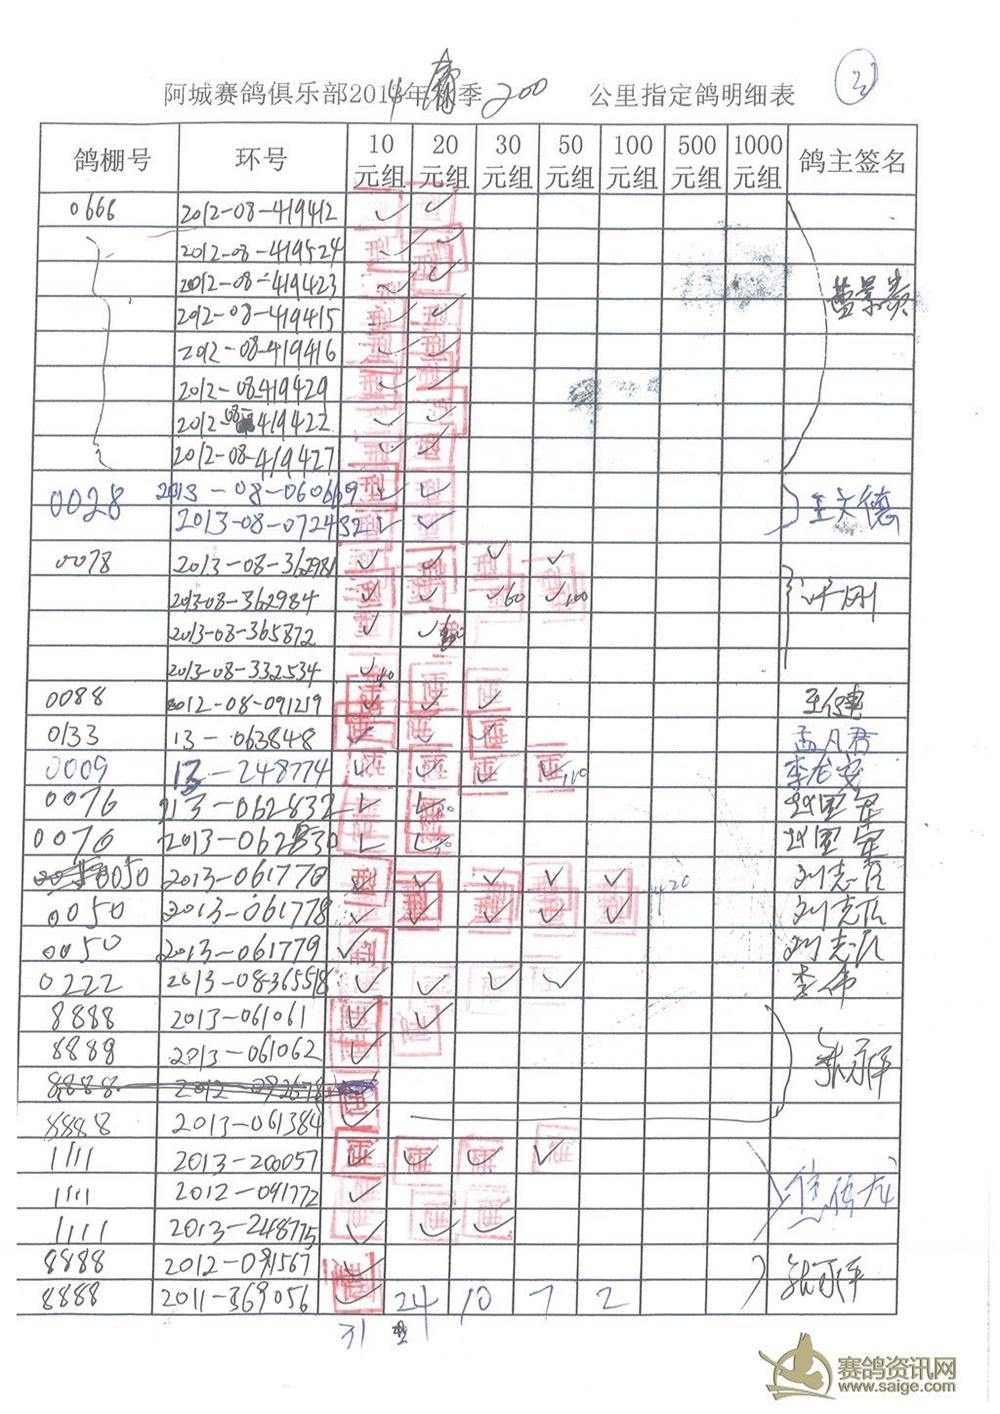 阿城赛鸽俱乐部2014年 季 200 公里指定鸽明细表 ②
鸽棚号 环号 10元组 20元组 30元组 50元组 100元组 500元组 1000元组 鸽主签名
0666 2012-08-419412 ✓ ✓
2012-08-419524 ✓ ✓
2012-08-419423 ✓ ✓
2012-08-419415 ✓ ✓
2012-08-419416 ✓ ✓
2012-08-419429 ✓ ✓
2012-08-419422 ✓ ✓
2012-08-419427 ✓ ✓
0028 2013-08-060669 ✓ ✓ 王文德
2013-08-072432 ✓ ✓
0078 2013-08-362981 ✓ ✓ ✓ ✓
2013-08-362984 ✓ ✓ ✓60 ✓100
2013-08-365872 ✓ ✓
2013-08-332534 ✓40
0088 2012-08-091219 ✓ ✓ ✓
0133 13-063848 ✓ ✓ ✓ 孟凡君
0009 13-248774 ✓ ✓ ✓ ✓ 李龙安
0076 213-062832 ✓ ✓
0076 2013-062830 ✓ ✓
0050 2013-061770 ✓ ✓ ✓ ✓ ✓ 420
0050 2013-061778 ✓ ✓ ✓ ✓ ✓
0050 2013-061779 ✓
0222 2013-08-365518 ✓ ✓ ✓ ✓ 李伟
8888 2013-061061 ✓ ✓
8888 2013-061062 ✓ 张永平
8888
8888 2013-061384 ✓
1111 2013-200057 ✓ ✓ ✓ ✓
1111 2012-091772 ✓
1111 2013-248775 ✓ ✓ ✓
8888 2012-091567 ✓ 张永平
8888 2011-369056 ✓ 24 10 7 2
31
赛鸽资讯网
www.saige.com